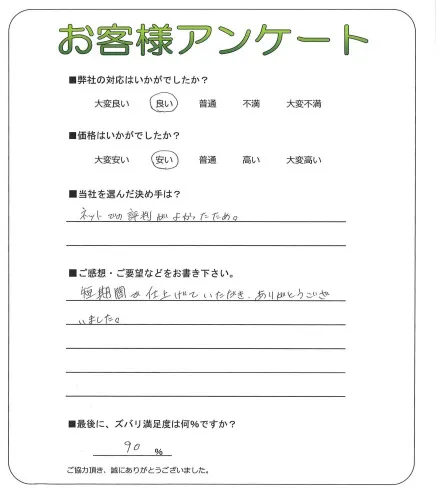 お客様アンケート
■弊社の対応はいかがでしたか？
大変良い 良い 普通 不満 大変不満
■価格はいかがでしたか？
大変安い 安い 普通 高い 大変高い
■当社を選んだ決め手は？
ネットでの評判がよかったため。
■ご感想・ご要望などをお書き下さい。
短期間で仕上げていただき、ありがとうござ
いました。
■最後に、ズバリ満足度は何%ですか？
90 %
ご協力頂き、誠にありがとうございました。